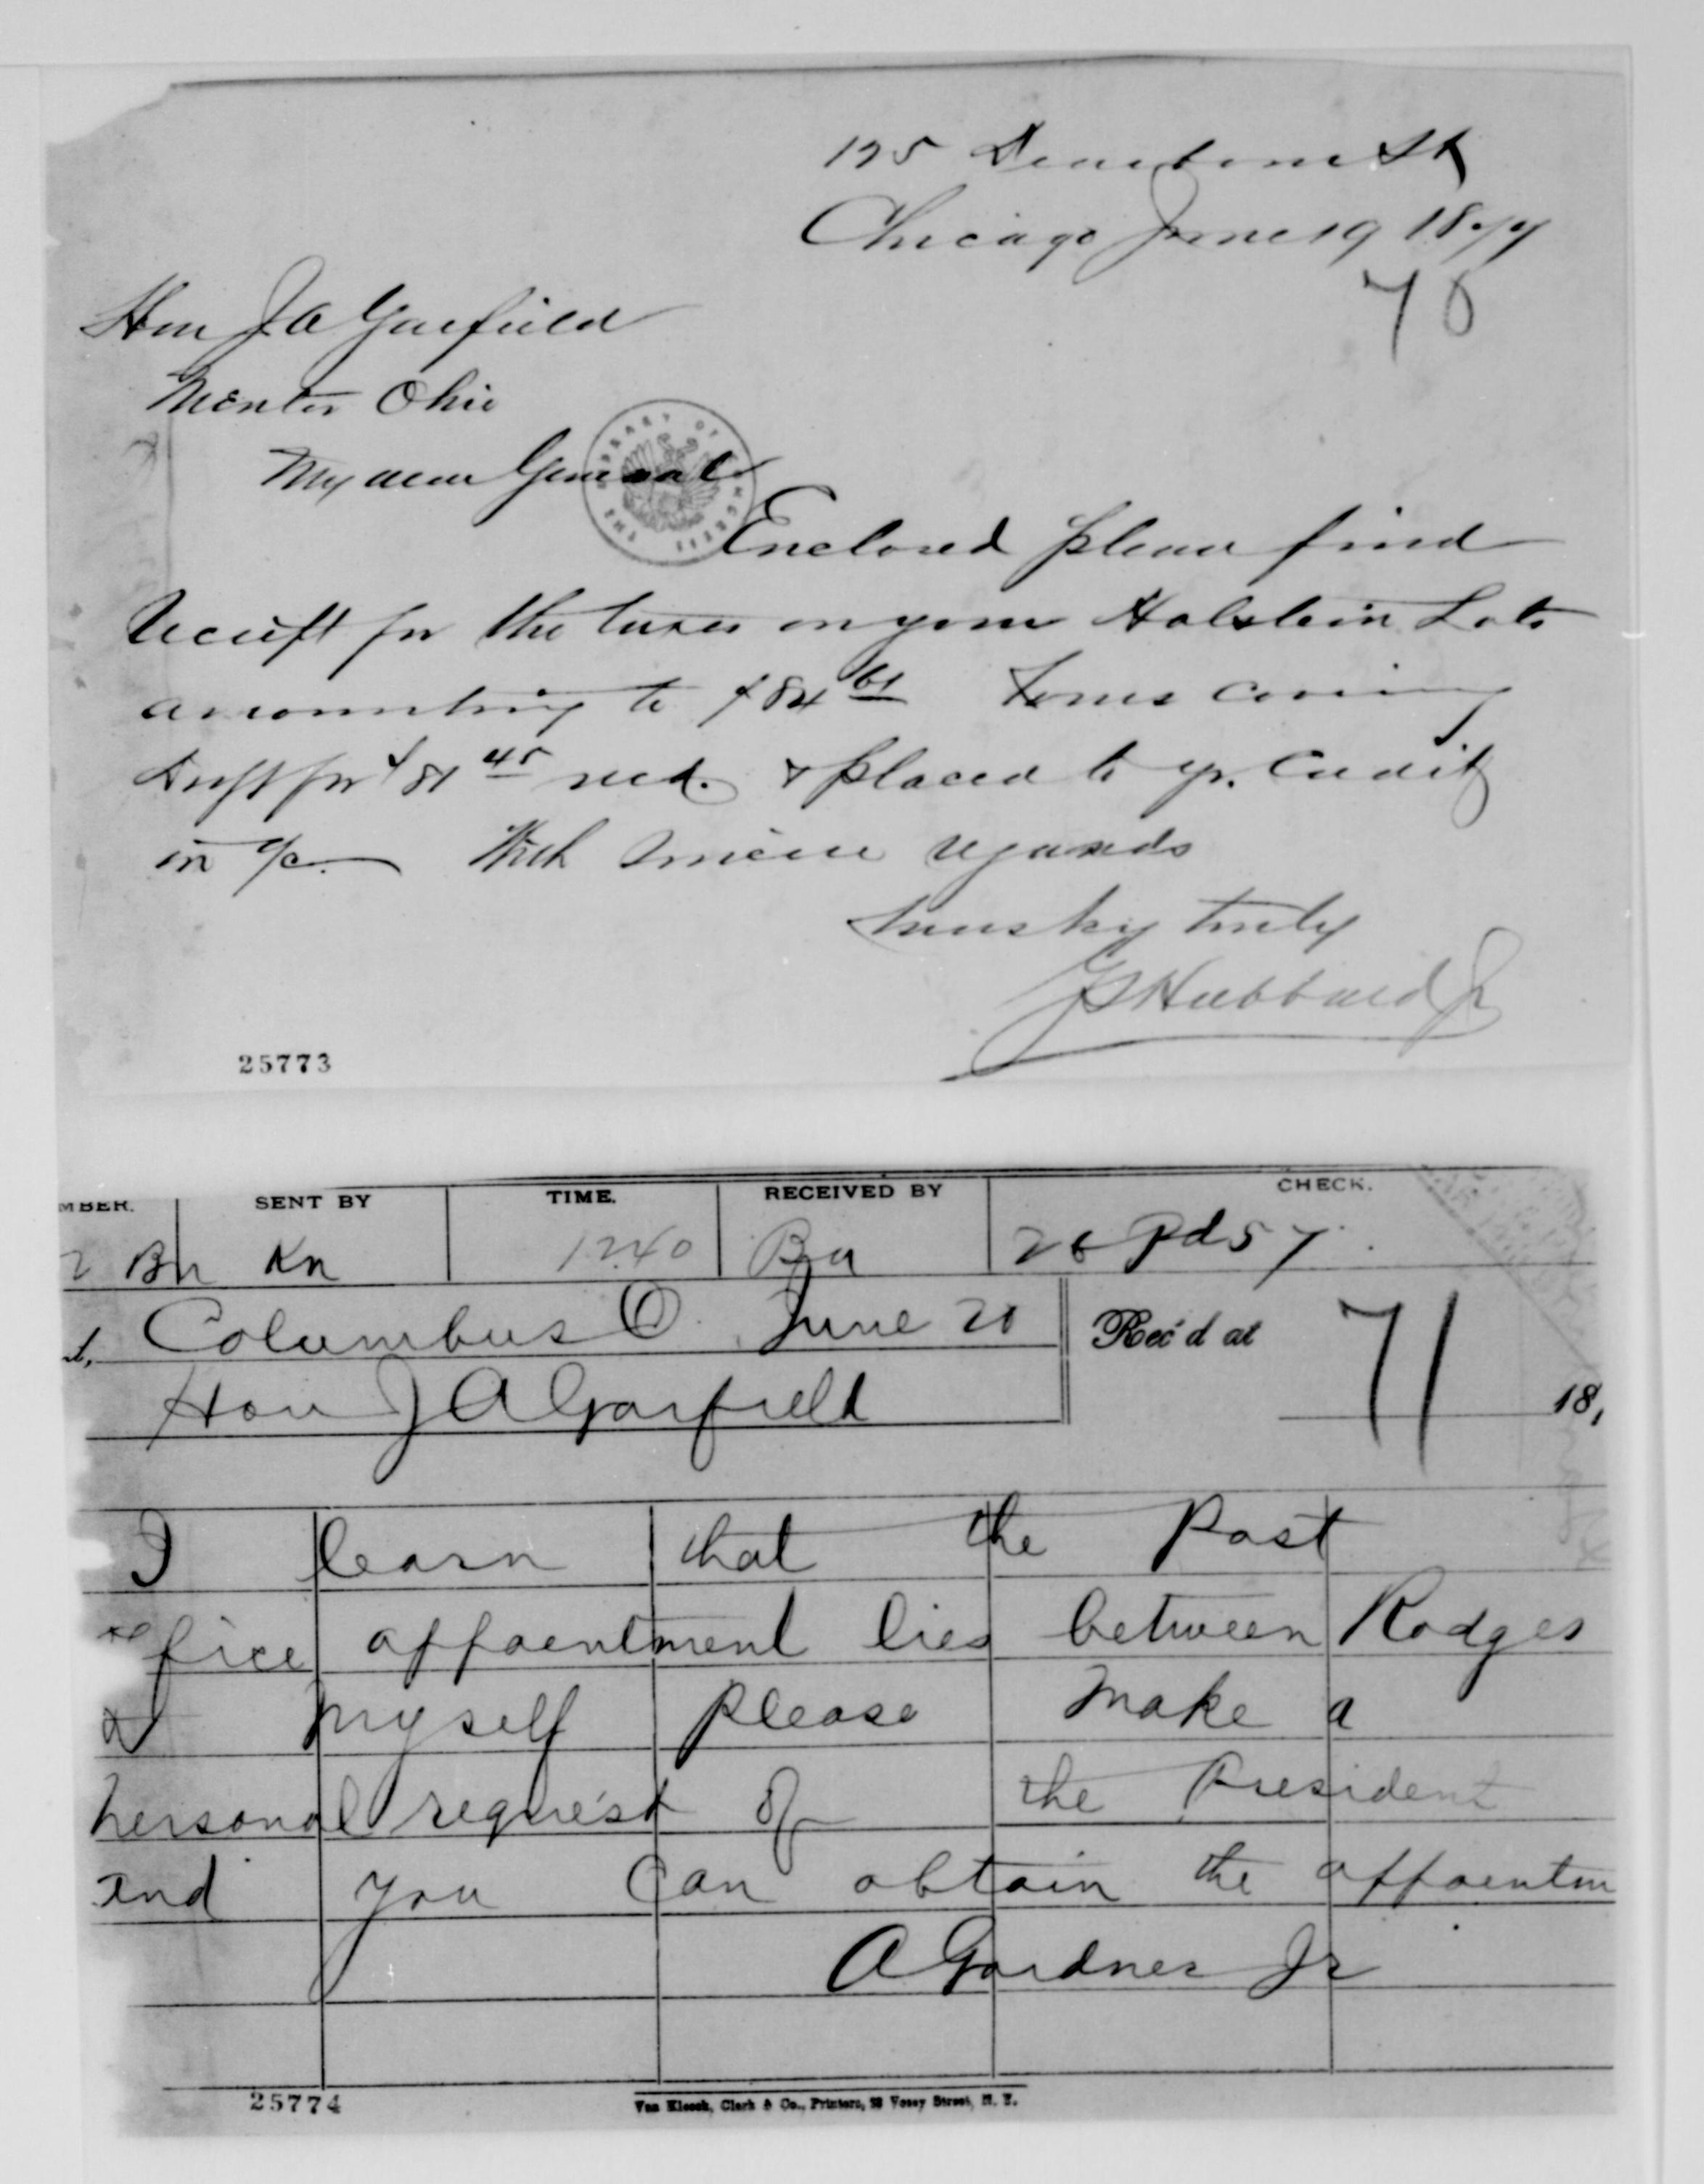 175 Dearborn St
Chicago June 19 1877
70
Hon J A Garfield
Mentor Ohio
My dear General
Enclosed please find
Receipt for the taxes on your Holstein Lots
amounting to $84 61 Yours covering
draft for $81 45 recd. & placed to yr. Credit
in a/c. With sincere regards
truly
G S Hubbard Jr
25773
MBER. SENT BY TIME. RECEIVED BY CHECK.
Bn Kn 1240 Bu 26 Pd 57
Columbus O. June 20 Rec'd at 71
Hon J A Garfield 18
I learn that the Post
office appointment lies between Rodges
& myself please make a
personal request of the President
and you can obtain the appointm
A Gardner Jr
25774
Van Kleeck, Clark & Co., Printers, Vesey Street, N. Y.